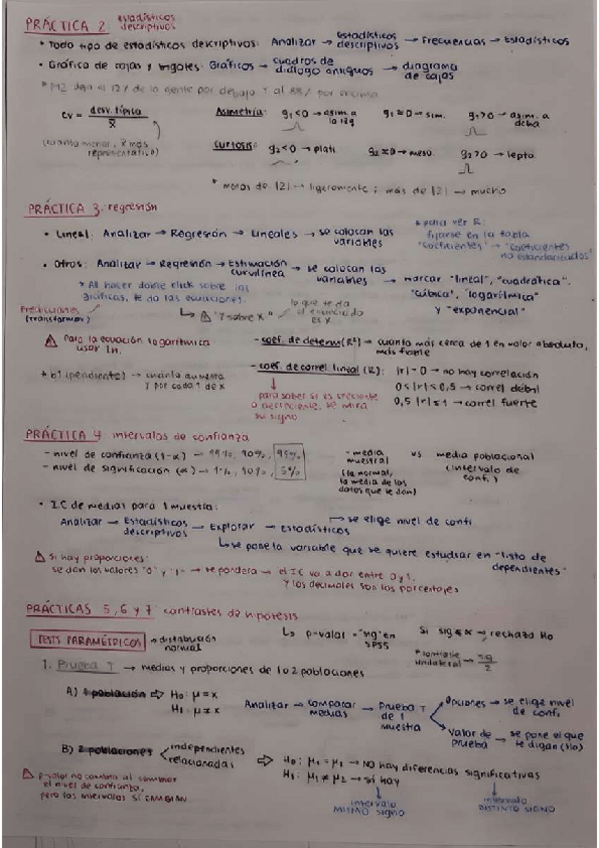 PRÁCTICA 2: estadísticos descriptivos
• Todo tipo de estadísticos descriptivos: Analizar → Estadísticos descriptivos → Frecuencias → Estadísticos
• Gráfico de cajas y bigotes: Gráficos → cuadros de diálogo antiguos → diagrama de cajas
de la gente por debajo y al 88% por encima
CV = desv. típica / x̄
Asimetría: g₁<0 → asim. a la izq g₁=0 → sim. g₁>0 → asim. a dcha
(cuanto menor, x̄ más representativo)
Curtosis: g₂<0 → plati g₂=0 → meso. g₂>0 → lepto.
* menos de |2| → ligeramente; más de |2| → mucho
PRÁCTICA 3: regresión
• Lineal: Analizar → Regresión → Lineales → se colocan las variables
* para ver R: fijarse en la tabla "coeficientes" → "coeficientes no estandarizados"
• Otros: Analizar → Regresión → Estimación curvilínea → se colocan las variables → marcar "lineal", "cuadrática", "cúbica", "logarítmica" y "exponencial"
* Al hacer doble click sobre las gráficas, te da las ecuaciones.
Predicciones (transformar)
"Y sobre X" lo que te da el enunciado es X
Para la ecuación logarítmica usar ln.
- coef. de determ (R²) → cuanto más cerca de 1 en valor absoluto, más fiable
* b1 (pendiente) → cuánto aumenta y por cada 1 de x
- coef. de correl lineal (R): |r| = 0 → no hay correlación
0 ≤ |r| ≤ 0,5 → correl débil
0,5 |r| ≤ 1 → correl fuerte
para saber si es creciente o decreciente, se mira su signo
PRÁCTICA 4: intervalos de confianza
- nivel de confianza (1-α) → 99%, 90%, 95%
- nivel de significación (α) → 1%, 10%, 5%
- media muestral (la normal, la media de los datos que te dan) vs media poblacional (intervalo de conf.)
• I.C de medias para 1 muestra:
Analizar → Estadísticos descriptivos → Explorar → Estadísticos → se elige nivel de conf.
se pone la variable que se quiere estudiar en "lista de dependientes"
Si hay proporciones:
se dan los valores "0" y "1" → → el IC va a dar entre 0 y 1,
y los decimales son los porcentajes
PRÁCTICAS 5, 6 y 7: contrastes de hipótesis
TESTS PARAMÉTRICOS → distribución normal
p-valor = "sig" en SPSS
Si sig ≤ α → rechazo H₀
* contraste unilateral → sig / 2
1. Prueba T → medias y proporciones de 1 o 2 poblaciones
A) 1 población ⇒ H₀: μ = x
H₁: μ ≠ x
Analizar → Comparar medias → Prueba T de 1 muestra
Opciones → se elige nivel de conf.
Valor de prueba → se pone el que te digan (H₀)
B) 2 poblaciones independientes relacionadas ⇒ H₀: μ₁ = μ₁ → NO hay diferencias significativas
H₁: μ₁ ≠ μ₂ → sí hay
p-valor no cambia al cambiar el nivel de confianza, pero los intervalos SÍ CAMBIAN
intervalo MISMO SIGNO
intervalo DISTINTO SIGNO